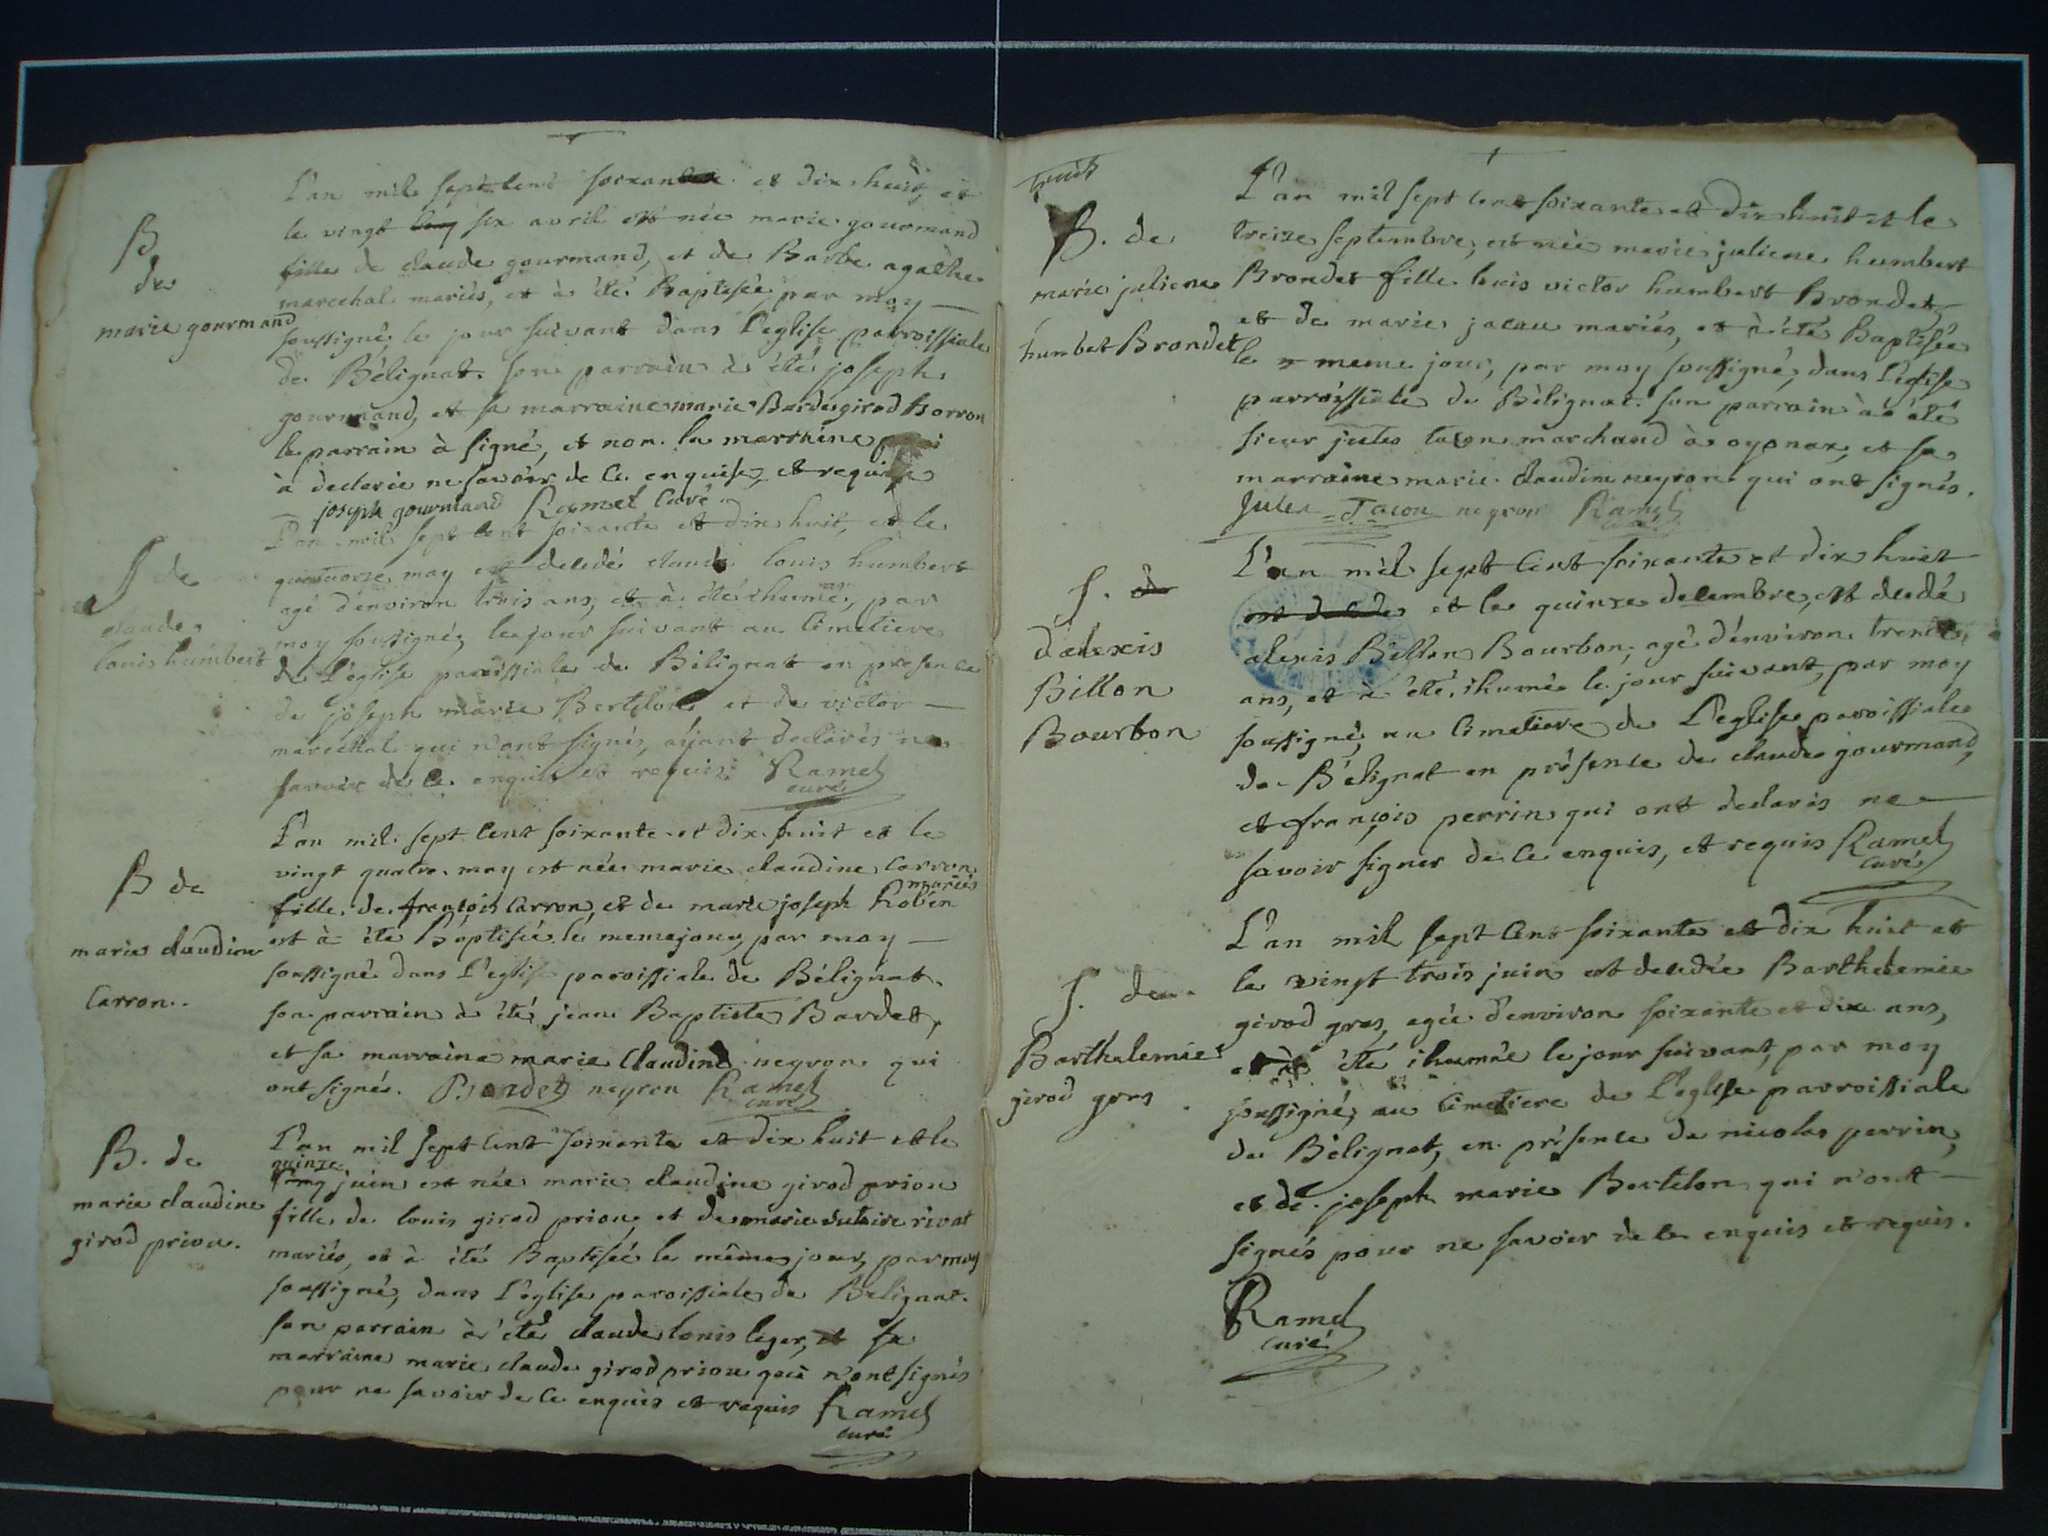 B
de
marie gourmand
L'an mil sept cent soixante et dix huit, et
le vingt six avril est née marie gourmand
fille de claude gourmand, et de Barbe agathe
marechal mariés, et à été Baptisée, par moy
soussigné, le jour suivant dans l'eglise parroissiale
de Bélignat. son parrain à été joseph
gourmand, et sa marraine marie Bardes girod
le parrain à signé, et non la marraine
à declarée ne savoir de ce enquise, et requise
joseph gourmand Ramel Curé
S de
claude
louis humbert
L'an mil sept cent soixante et dix huit, et le
quatorze may est decedé claude louis humbert
agé d'environ trois ans, et à été ihumé, par
moy soussigné, le jour suivant au Cimetiere
de l'église paroissiale de Bélignat en presence
de joseph marie Bertelon et de victor
marechal qui n'ont signés, ayant declarés ne
savoir de ce enquis et requis. Ramel
curé
B de
marie claudine
Carron.
L'an mil sept cent soixante et dix huit et le
vingt quatre may est née marie claudine Carron
mariés
fille de françois Carron, et de marie joseph Robin
et à été Baptisée le meme jour, par moy
soussigné dans l'eglise paroissiale de Bélignat.
son parrain à été jean Baptiste Bardet,
et sa marraine marie Claudine neyron qui
ont signés. Bardet neyron Ramel
curé
B. de
marie claudine
girod priou.
L'an mil sept cent soixante et dix huit et le
quinze
juin est née marie claudine girod priou
fille de louis girod priou, et de marie rivat
mariés, et à été Baptisée le même jour, par moy
soussigné, dans l'église paroissiale de Belignat.
son parrain à été claude louis leger, et sa
marraine marie claude girod priou qui n'ont signés
pour ne savoir de ce enquis et requis Ramel
curé
B. de
marie juliene
humbet Brondet
L'an mil sept cent soixante et dix huit et le
treize septembre, est née marie juliene humbert
Brondet fille louis victor humbert Brondet,
et de marie mariés, et à été Baptisée
le meme jour, par moy soussigné, dans l'eglise
parroissiale de Bélignat. son parrain à été
sieur jules tacon marchand à oyonax, et sa
marraine marie claudine neyron qui ont signés.
Jules Tacon neyron Ramel
S.
d'alexis
Billon
Bourbon
L'an mil sept Cent soixante et dix huit
et le quinze decembre, est decedé
alexis Billon Bourbon, agé d'environ trente
ans, et à été ihumé le jour suivant, par moy
soussigné, au Cimetiere de l'eglise paroissiale
de Bélignat en présence de claude gourmand,
et françois perrin qui ont declarés ne
savoir signer de ce enquis, et requis Ramel
Curé
S. de
Barthelemie
girod gros
L'an mil sept Cent soixante et dix huit et
le vingt trois juin est decedée Barthelemie
girod gros, agée d'environ soixante et dix ans,
et à été ihumée le jour suivant, par moy
soussigné, au Cimetiere de l'eglise parroissiale
de Bélignat, en présence de nicolas perrin,
et de joseph marie Bertelon qui n'ont
signés pour ne savoir de ce enquis et requis.
Ramel
curé